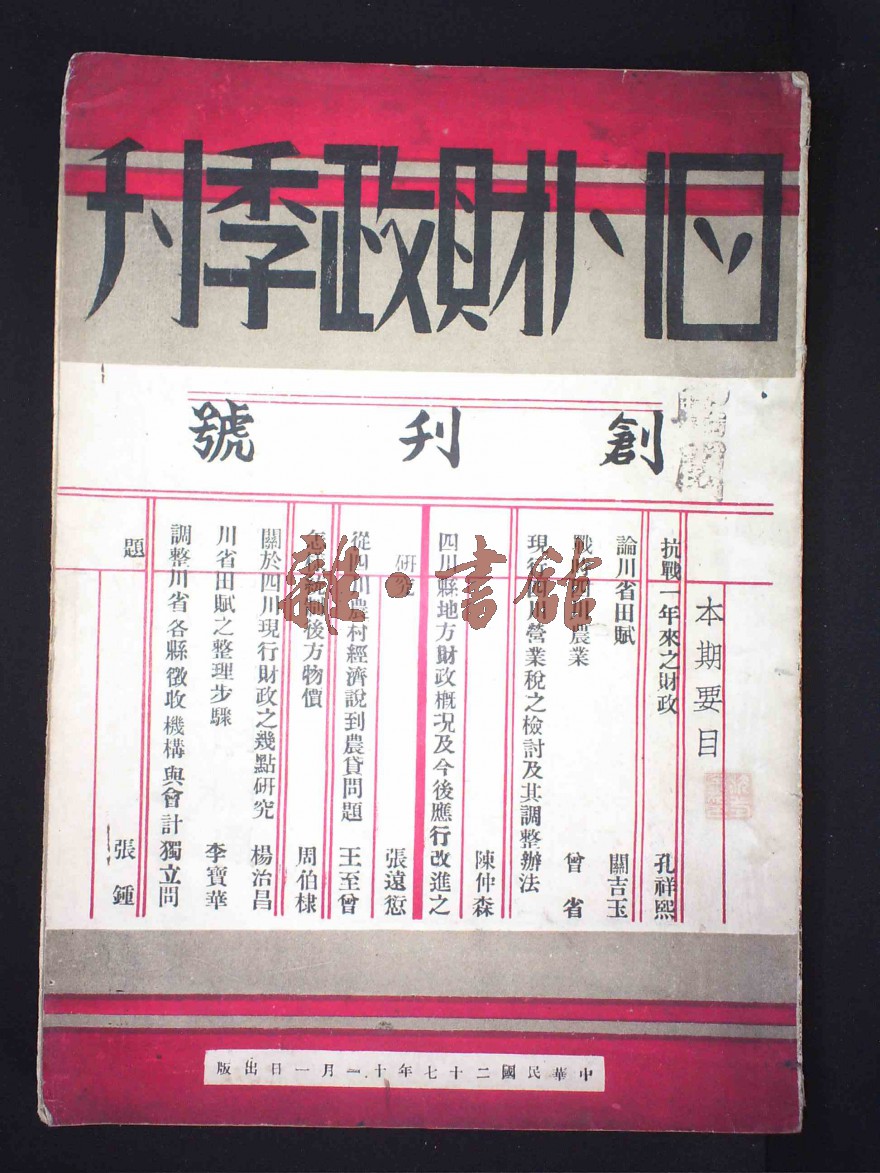 四川財政季刊
創刊號
本期要目
抗戰一年來之財政 孔祥熙
論川省田賦 關吉玉
戰時四川農業 曾省
現行四川營業稅之檢討及其調整辦法
陳仲森
四川縣地方財政概況及今後應行改進之
研究 張遠愆
從四川農村經濟說到農貸問題 王至曾
怎樣統制後方物價 周伯棣
關於四川現行財政之幾點研究 楊治昌
川省田賦之整理步驟 李寶華
調整川省各縣徵收機構與會計獨立問
題 張鍾
中華民國二十七年十一月一日出版
雜·書館